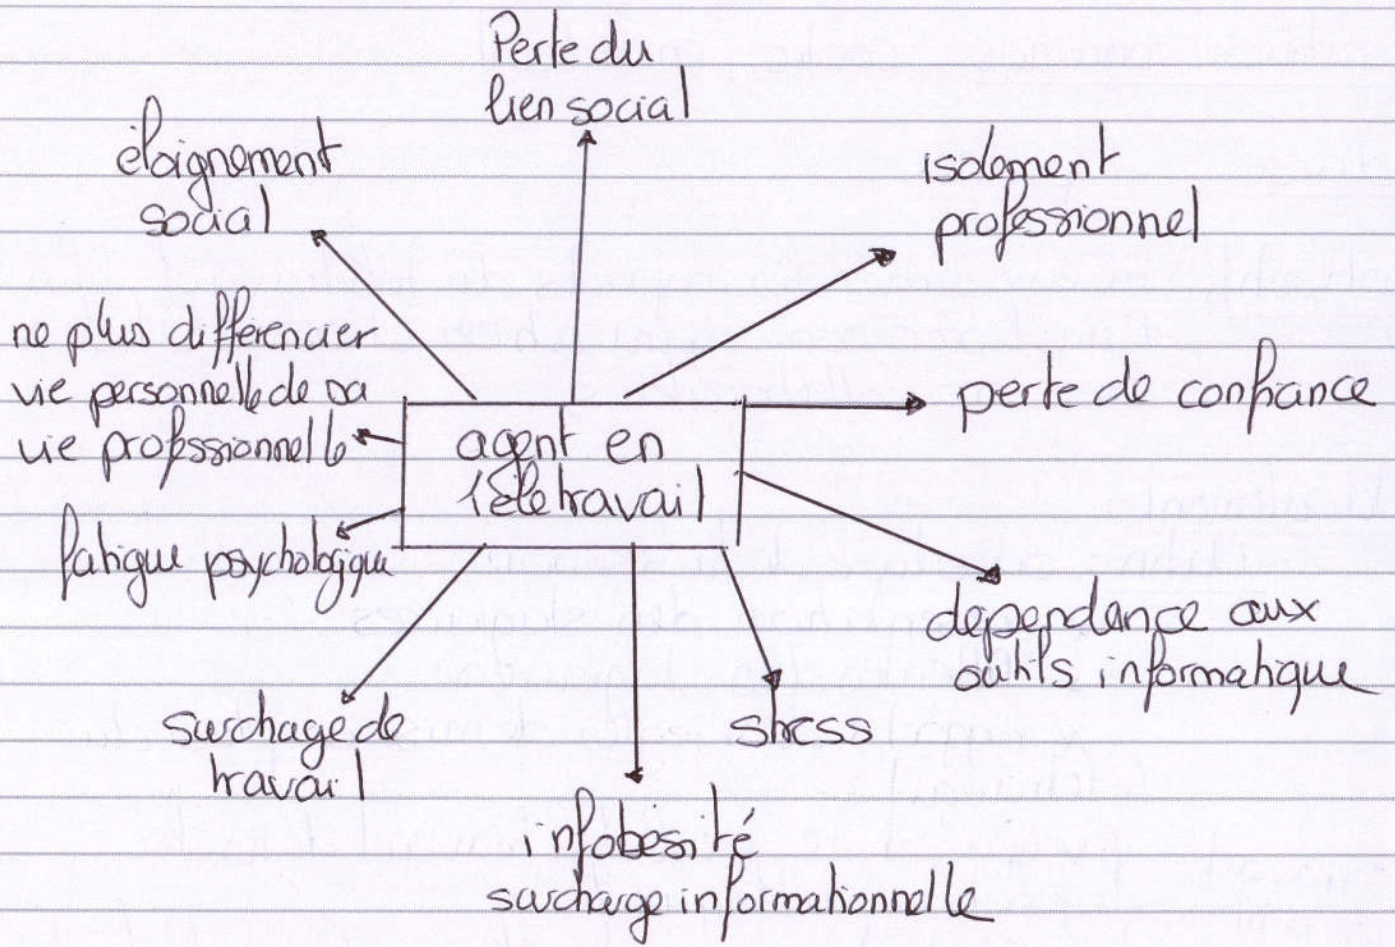 Perte du
lien social
éloignement
social
isolement
professionnel
ne plus différencier
vie personnelle de sa
vie professionnelle
perte de confiance
agent en
télétravail
fatigue psychologique
dépendance aux
outils informatique
surchage de
travail
stress
infobésité
surcharge informationnelle